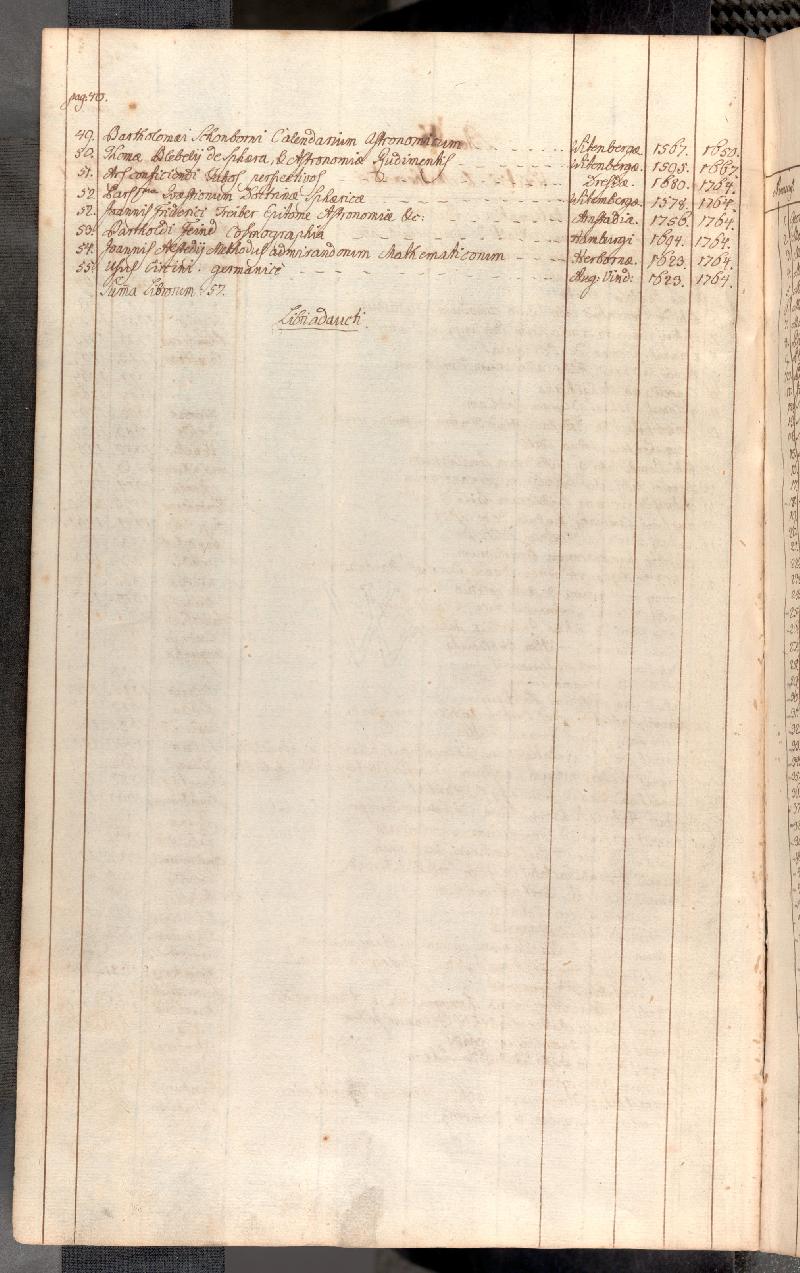 pag: 40.
49. Bartholomæi Schonborni Calendarium Astronomicum - - - Witenbergæ 1567. 1650.
50. Thomæ Blebelij de Sphæra, & Astronomiæ Rudimentis - - - Witenbergæ. 1595. 1667.
51. Ars conficiendi tubos perspectivos - - - Dresdæ. 1680. 1764.
52. Pars Quæstionum Doctrinæ Sphæricæ - - - Witembergæ. 1578. 1764.
52. Joannis Friderici Treiber Epitome Astronomiæ &c: - - - Anstadia. 1756. 1764.
53. Bartholdi Feind Cosmographia - - - Hamburgi 1694. 1764.
54. Joannis Alstedij Methodus admirandorum Mathematicorum - - - Herbornæ. 1623. 1764.
55. Usus Circini. germanicè - - - Aug: Vind: 1623. 1764.
Suma Librorum. 57.
Libri adaucti.